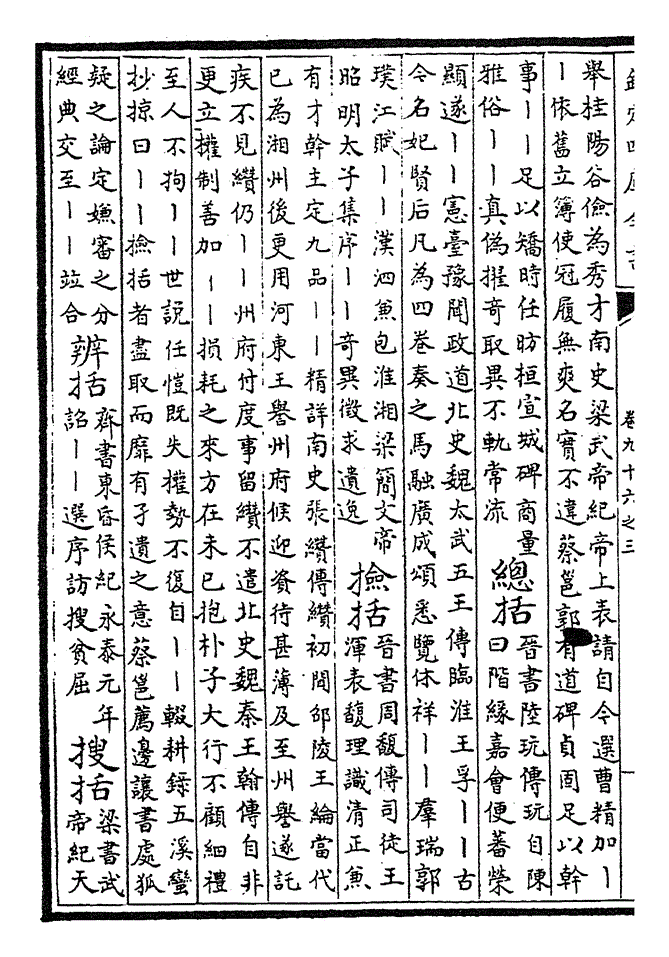 欽定四庫全書
卷九十六之三
舉桂陽谷儉為秀才南史梁武帝紀帝上表請自今選曹精加丨
丨依舊立簿使冠履無爽名實不違蔡邕郭有道碑貞固足以幹
事丨丨足以矯時任昉桓宣城碑商量
雅俗丨丨真偽擢奇取異不軌常流
總括
晉書陸玩傳玩自陳
曰階緣嘉會便蕃榮
顯遂丨丨憲臺豫聞政道北史魏太武五王傳臨淮王孚丨丨古
今名妃賢后凡為四卷奏之馬融廣成頌悉覽休祥丨丨羣瑞郭
璞江賦丨丨漢泗兼包淮湘梁簡文帝
昭明太子集序丨丨奇異徵求遺逸
撿括
晉書周馥傳司徒王
渾表馥理識清正兼
有才幹主定九品丨丨精詳南史張纘傳纘初聞邵陵王綸當代
已為湘州後更用河東王譽州府候迎資待甚薄及至州譽遂託
疾不見纘仍丨丨州府付度事留纘不遣北史魏秦王翰傳自非
更立權制善加丨丨損耗之來方在未已抱朴子大行不顧細禮
至人不拘丨丨世說任愷既失權勢不復自丨丨輟耕錄五溪蠻
抄掠曰丨丨撿括者盡取而靡有孑遺之意蔡邕薦邊讓書處狐
疑之論定嫌審之分
經典交至丨丨竝合
辨括
齊書東昏侯紀永泰元年
詔丨丨選序訪搜貧屈
搜括
梁書武
帝紀天